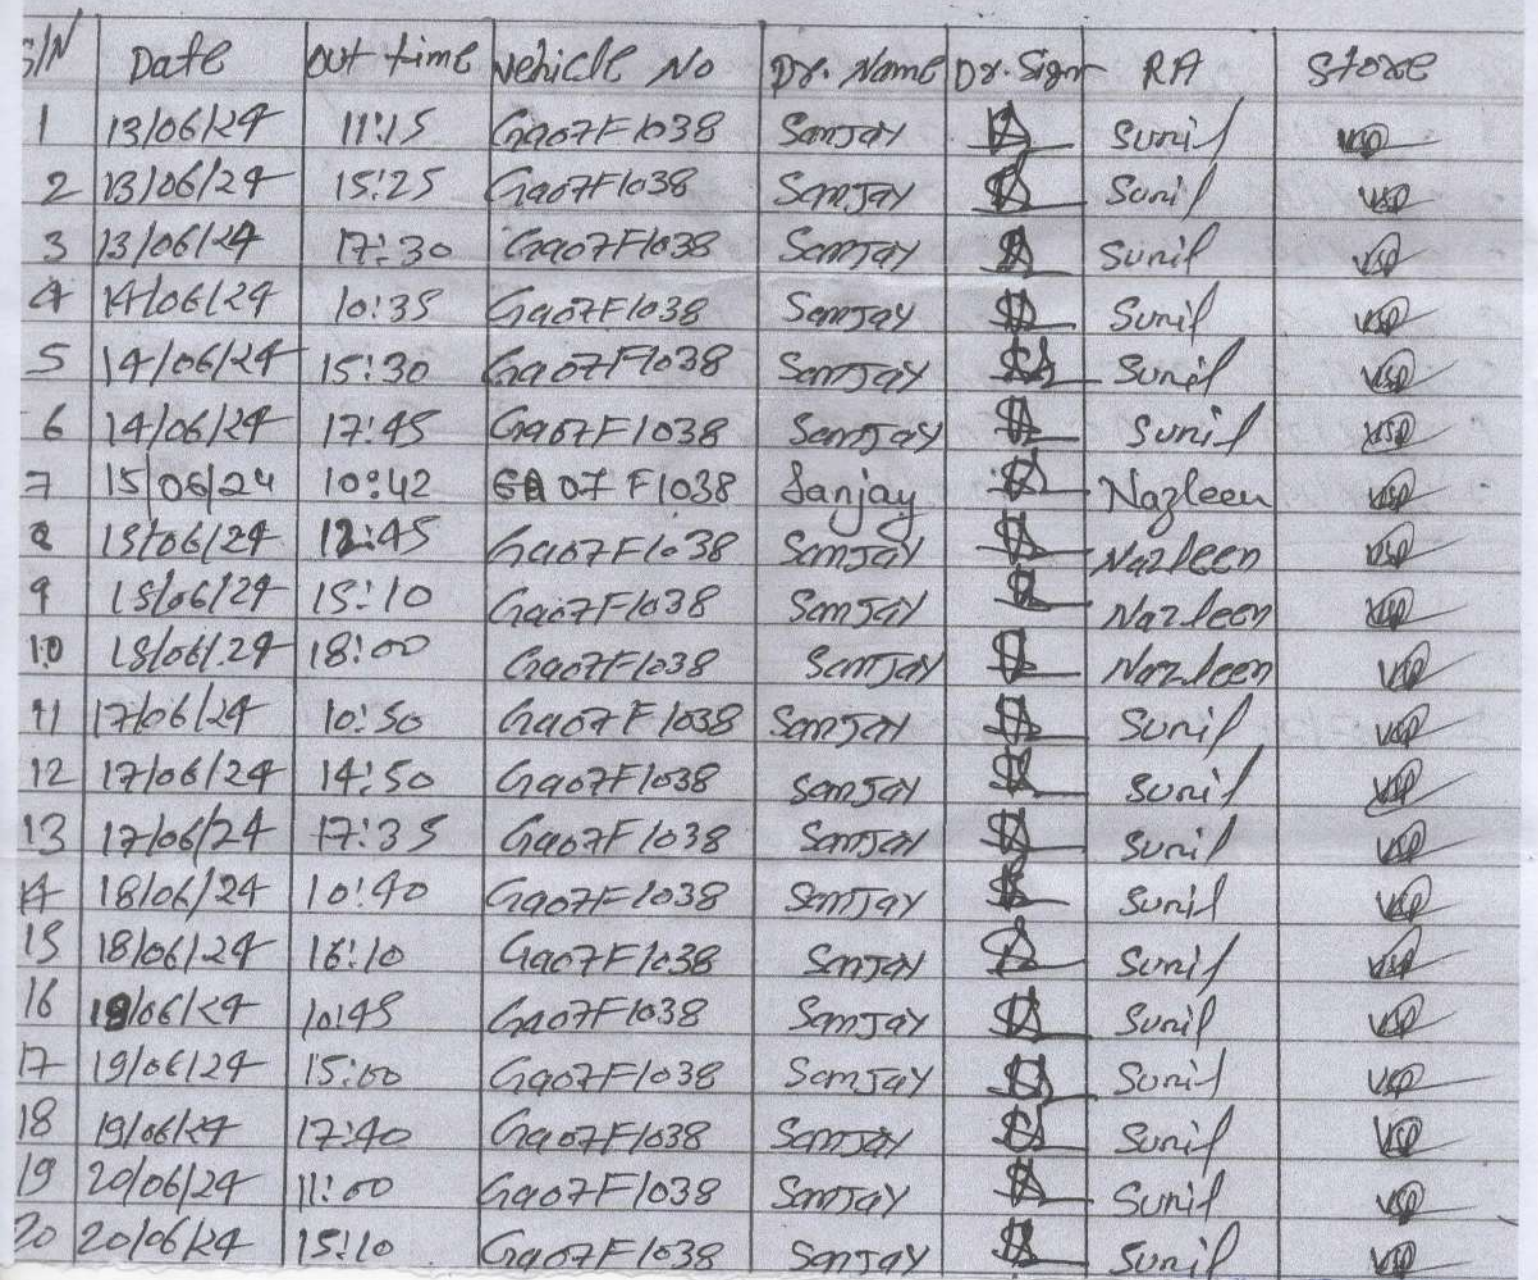 S/N Date out time Vehicle No Dr. Name Dr. Sign RA Store
1 13/06/24 11:15 Ga07F1038 Sanjay Sunil
2 13/06/24 15:25 Ga07F1038 Sanjay Sunil
3 13/06/24 17:30 Ga07F1038 Sanjay Sunil
4 14/06/24 10:35 Ga07F1038 Sanjay Sunil
5 14/06/24 15:30 Ga07F1038 Sanjay Sunil
6 14/06/24 17:45 Ga07F1038 Sanjay Sunil
7 15/06/24 10:42 GA 07 F1038 Sanjay Nazleen
8 15/06/24 12:45 Ga07F1038 Sanjay Nazleen
9 15/06/24 15:10 Ga07F1038 Sanjay Nazleen
10 15/06/24 18:00 Ga07F1038 Sanjay Nazleen
11 17/06/24 10:50 Ga07F1038 Sanjay Sunil
12 17/06/24 14:50 Ga07F1038 Sanjay Sunil
13 17/06/24 17:35 Ga07F1038 Sanjay Sunil
14 18/06/24 10:40 Ga07F1038 Sanjay Sunil
15 18/06/24 16:10 Ga07F1038 Sanjay Sunil
16 19/06/24 10:45 Ga07F1038 Sanjay Sunil
17 19/06/24 15:00 Ga07F1038 Sanjay Sunil
18 19/06/24 17:40 Ga07F1038 Sanjay Sunil
19 20/06/24 11:00 Ga07F1038 Sanjay Sunil
20 20/06/24 15:10 Ga07F1038 Sanjay Sunil